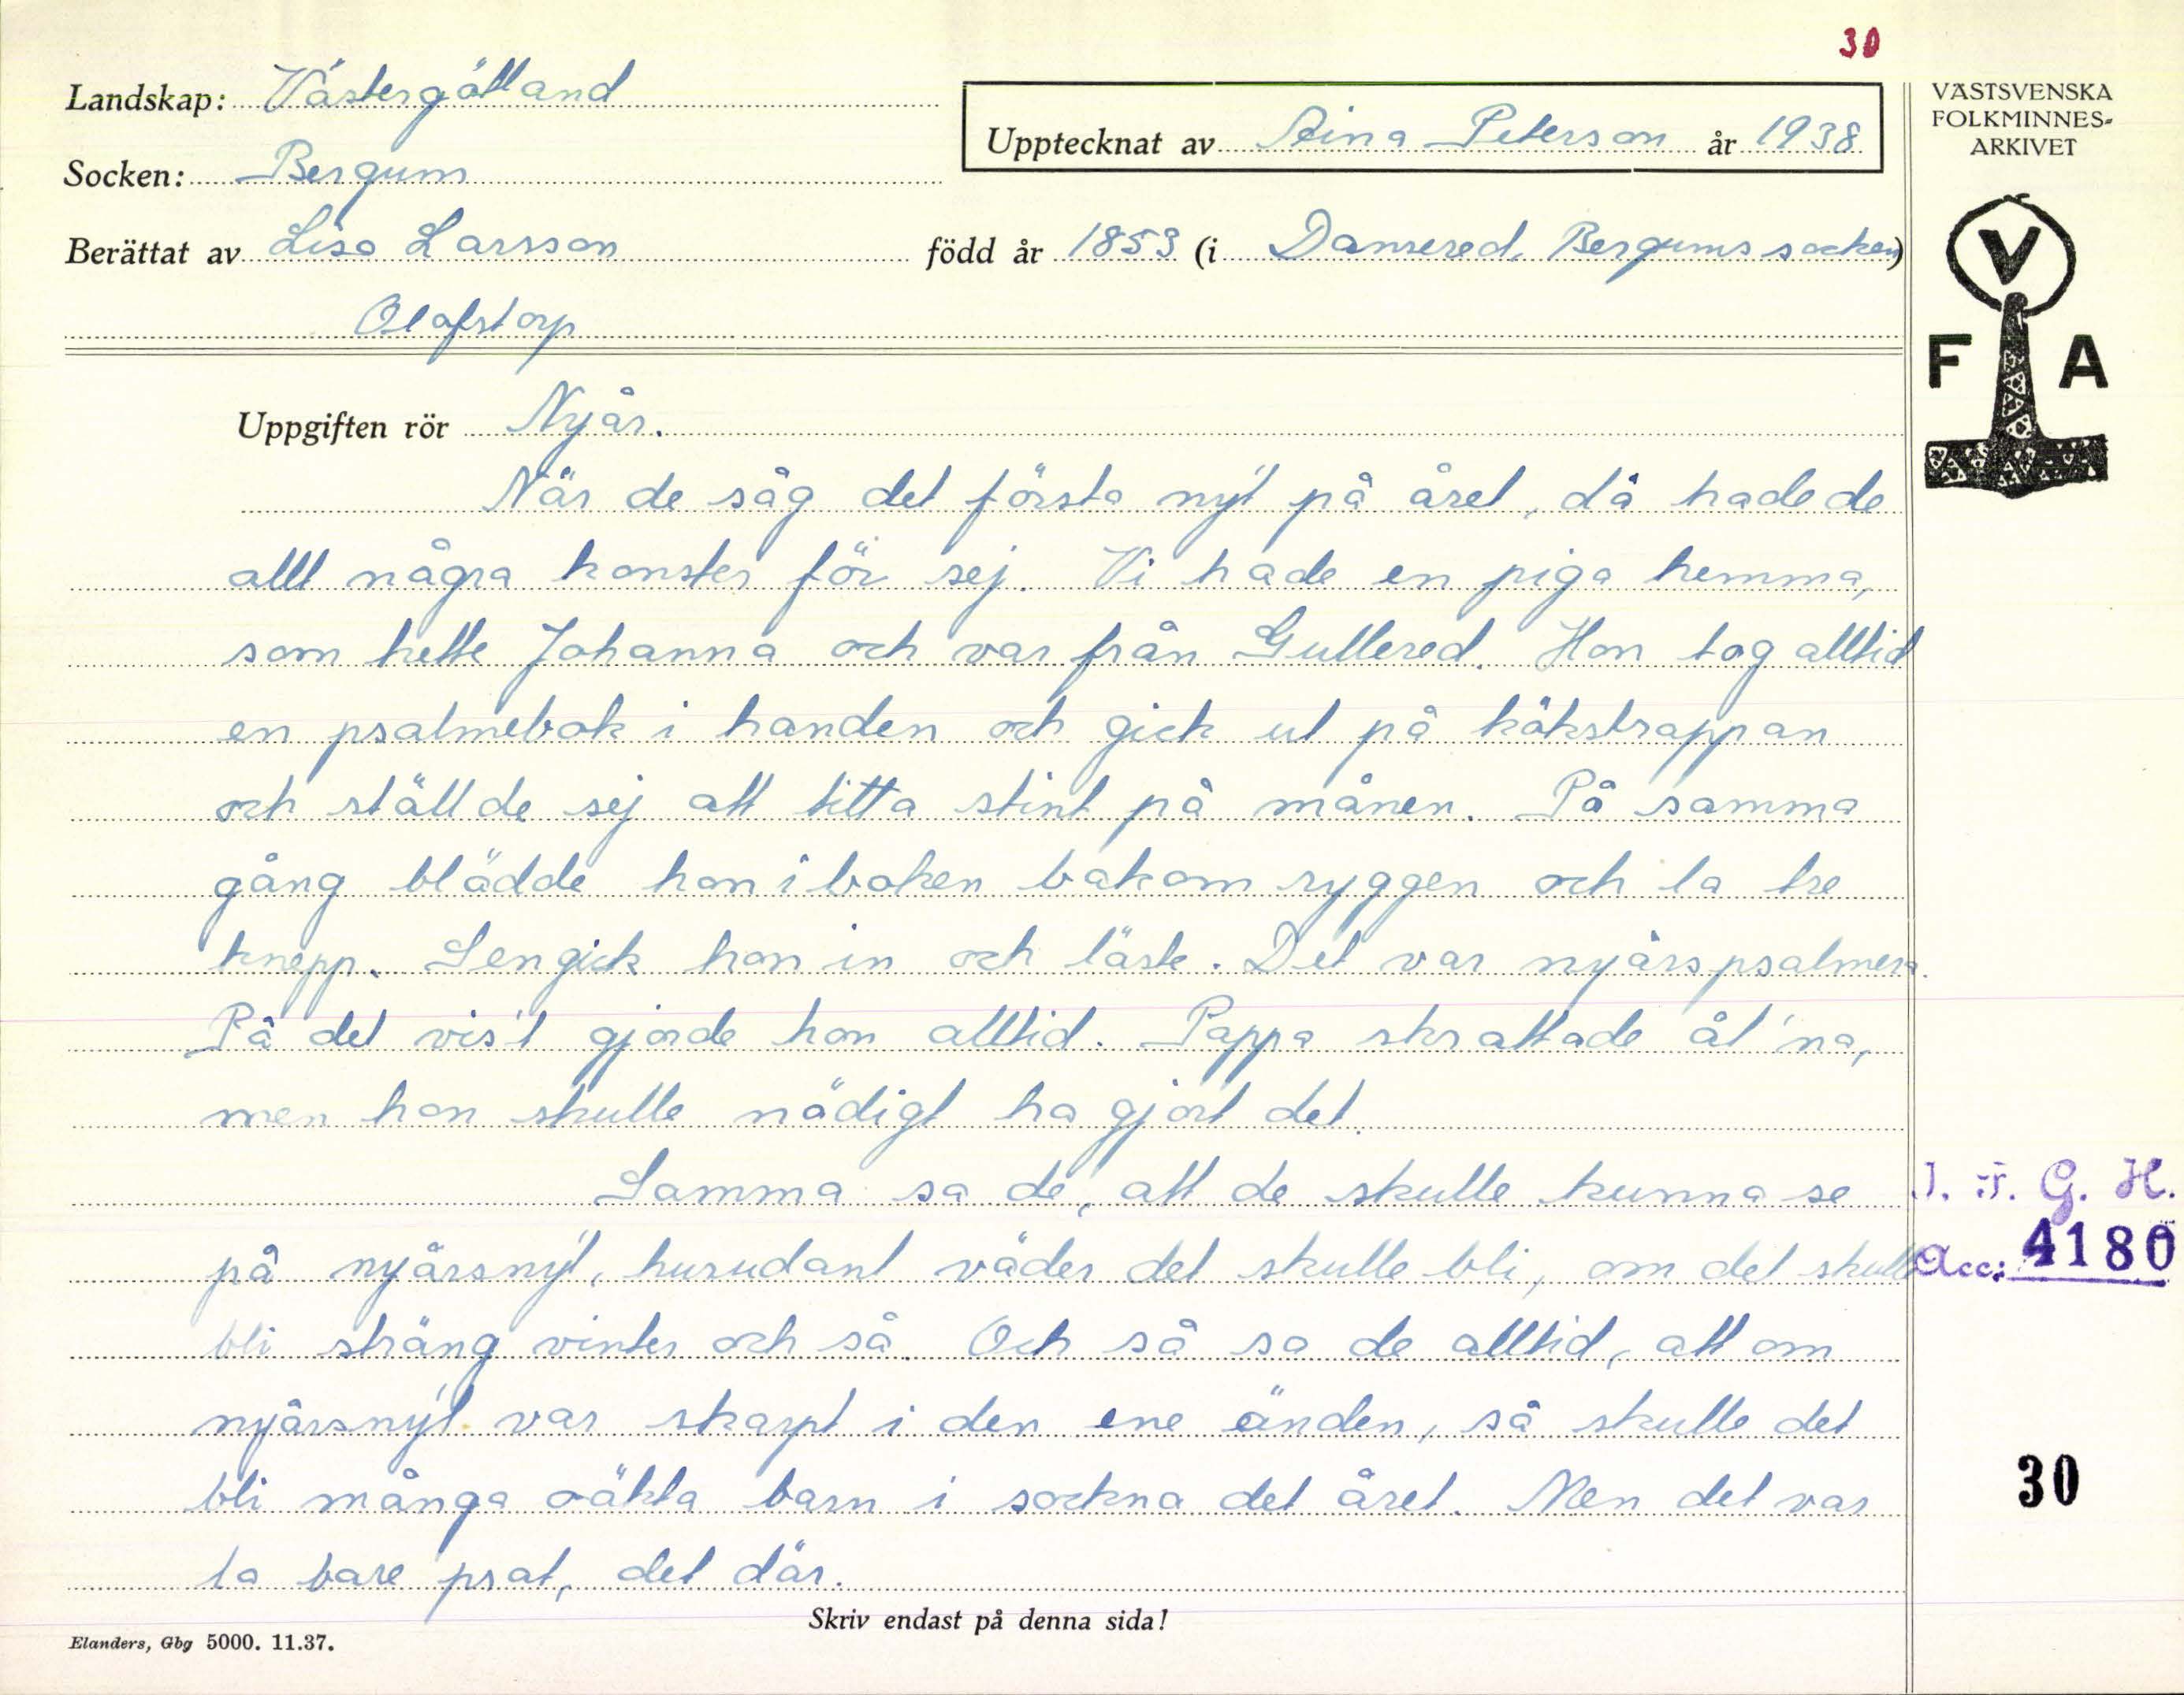 30
Landskap: Västergötland
VÄSTSVENSKA
FOLKMINNES-
ARKIVET
Upptecknat av Aina Peterson år 1938
Socken: Bergum
Berättat av Lisa Larsson född år 1853 (i Dansered, Bergums socken)
Olofstorp
V
F A
Uppgiften rör Nyår.
När de såg det första ny't på året, då hade de
allt några konster för sej. Vi hade en piga hemma,
som hette Johanna och var från Gullered. Hon tog alltid
en psalmebok i handen och gick ut på kökstrappan
och ställde sej att titta stint på månen. På samma
gång blädde hon i boken bakom ryggen och la tre
knepp. Sen gick hon in och läste. Det var nyårspsalmera.
På det vis't gjorde hon alltid. Pappa skrattade åt 'na,
men hon skulle nödigt ha gjort det.
Samma sa de, att de skulle kunna se
på nyårsny't, hurudant väder det skulle bli, om det skulle
bli sträng vinter och så. Och så sa de alltid, att om
nyårsny't var skarpt i den ene änden, så skulle det
bli många oäkta barn i sockna det året. Men det var
la bare prat, det där.
I. F. G. H.
Acc: 4180
30
Skriv endast på denna sida!
Elanders, Gbg 5000. 11.37.